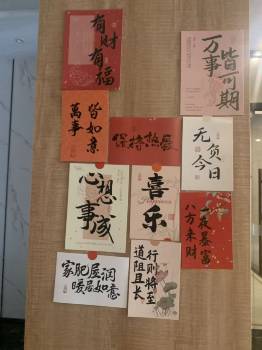 有财
有福
万事
皆可期
萬事
皆如意
保持热爱
无负
今日
心想
事成
喜乐
一夜暴富
八方来财
家肥屋润
暖居如意
道阻且长
行则将至